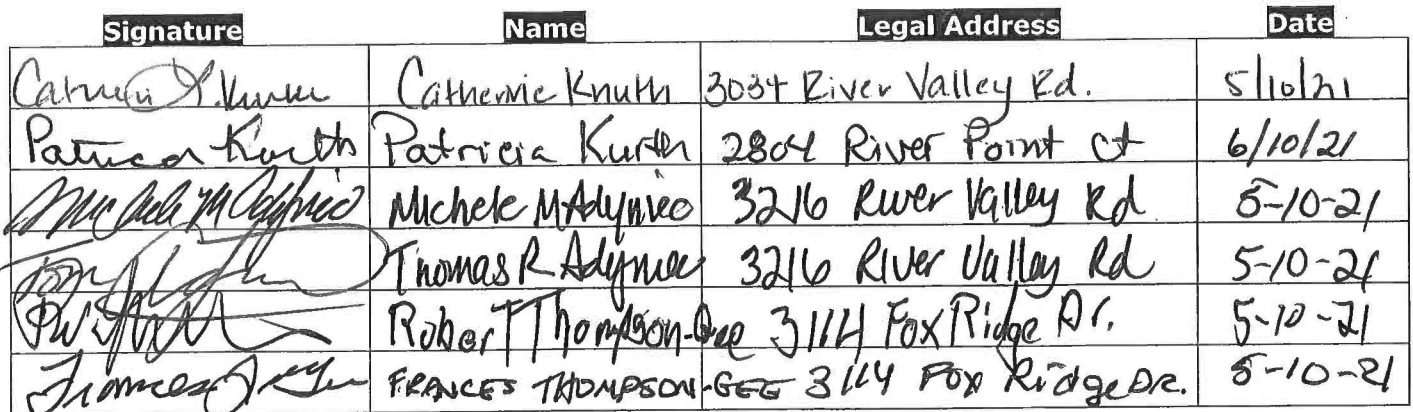 Signature Name Legal Address Date
Catherine Knuth 3034 River Valley Rd. 5/10/21
Patricia Kurth Patricia Kurth 2804 River Point Ct 6/10/21
Michele M Adymiec Michele M Adymiec 3216 River Valley Rd 5-10-21
Thomas R Adymiec 3216 River Valley Rd 5-10-21
Robert Thompson-Gee 3114 Fox Ridge Dr. 5-10-21
FRANCES THOMPSON-GEE 3114 Fox Ridge DR. 5-10-21